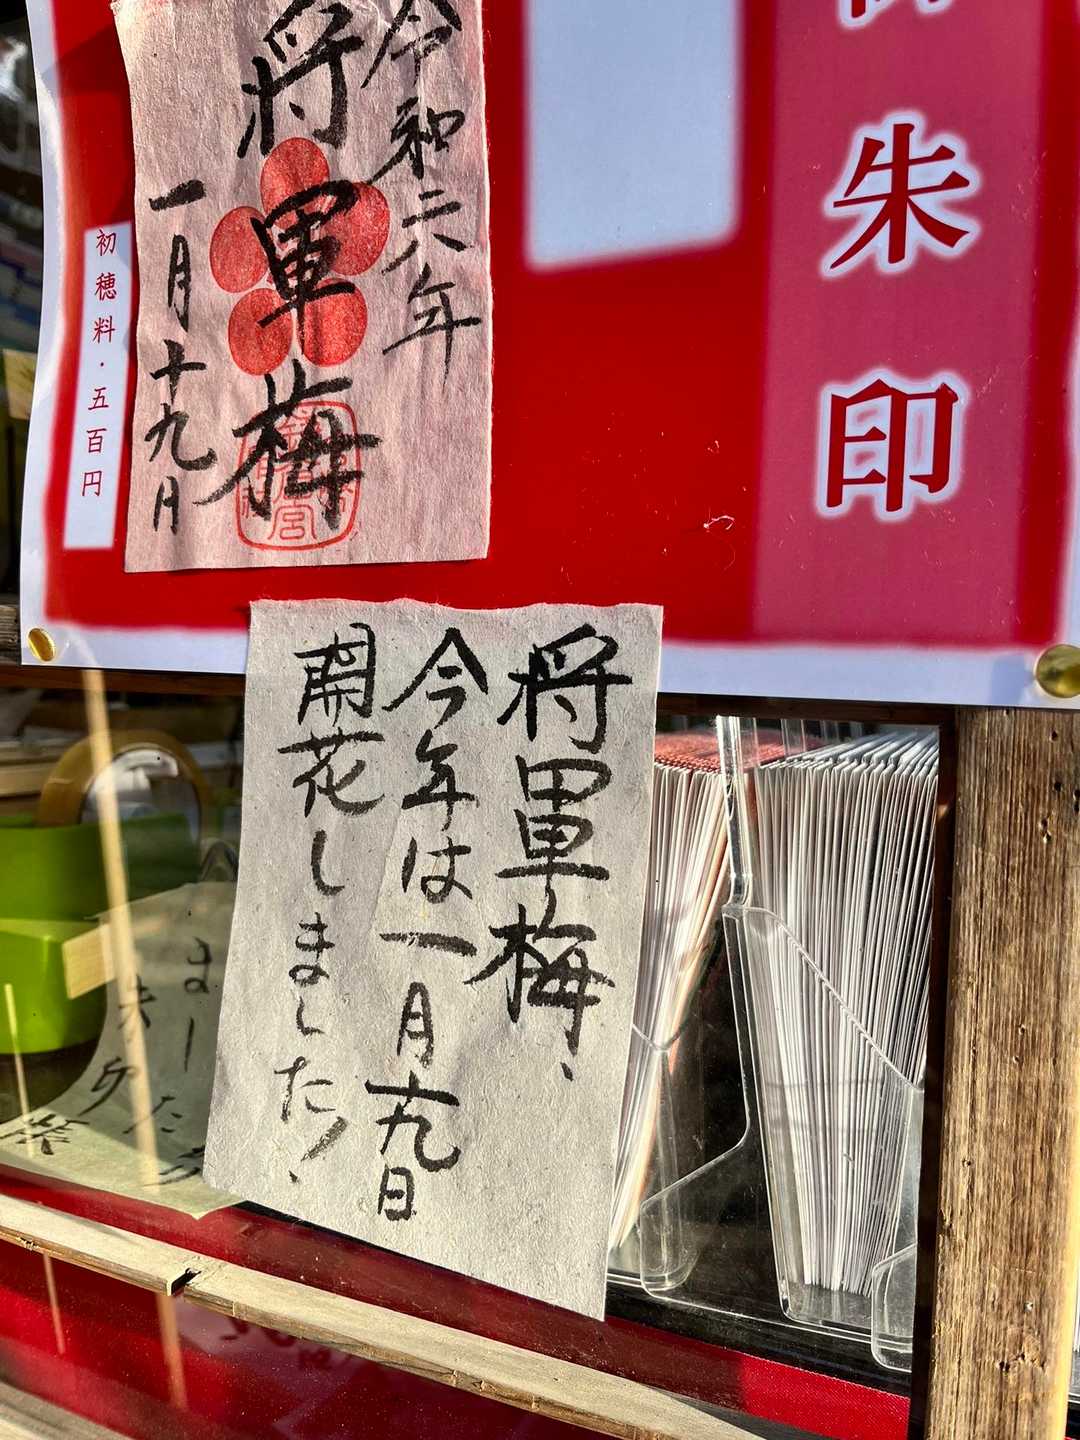 御朱印
令和六年
将軍梅
一月十九日
初穂料・五百円
将軍梅、
今年は一月十九日
開花しました!